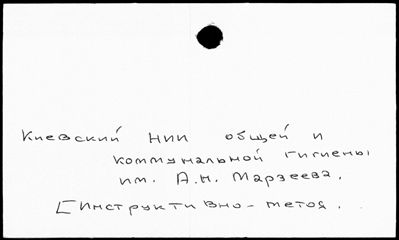 Киевский НИИ общей и
коммунальной гигиены
им. А.Н. Марзеева.
[Инструктивно-метод.